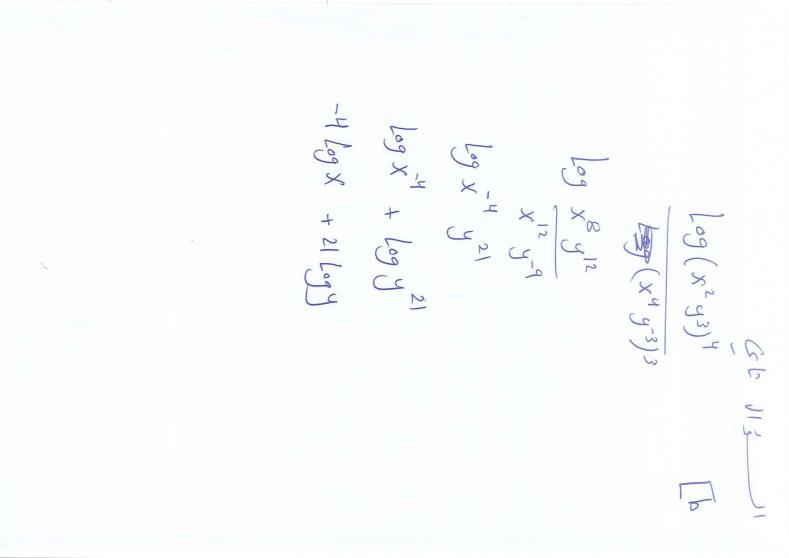 السؤال
[b
log (x² y³)⁴ / (x⁴ y⁻³)³
log x⁸ y¹² / x¹² y⁻⁹
log x⁻⁴ y²¹
log x⁻⁴ + log y²¹
-4 log x + 21 log y